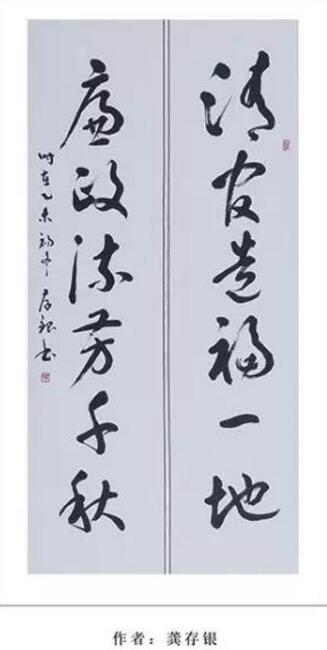 清官造福一地
廉政流芳千秋
时在乙未初夏存银书
作者：龚存银